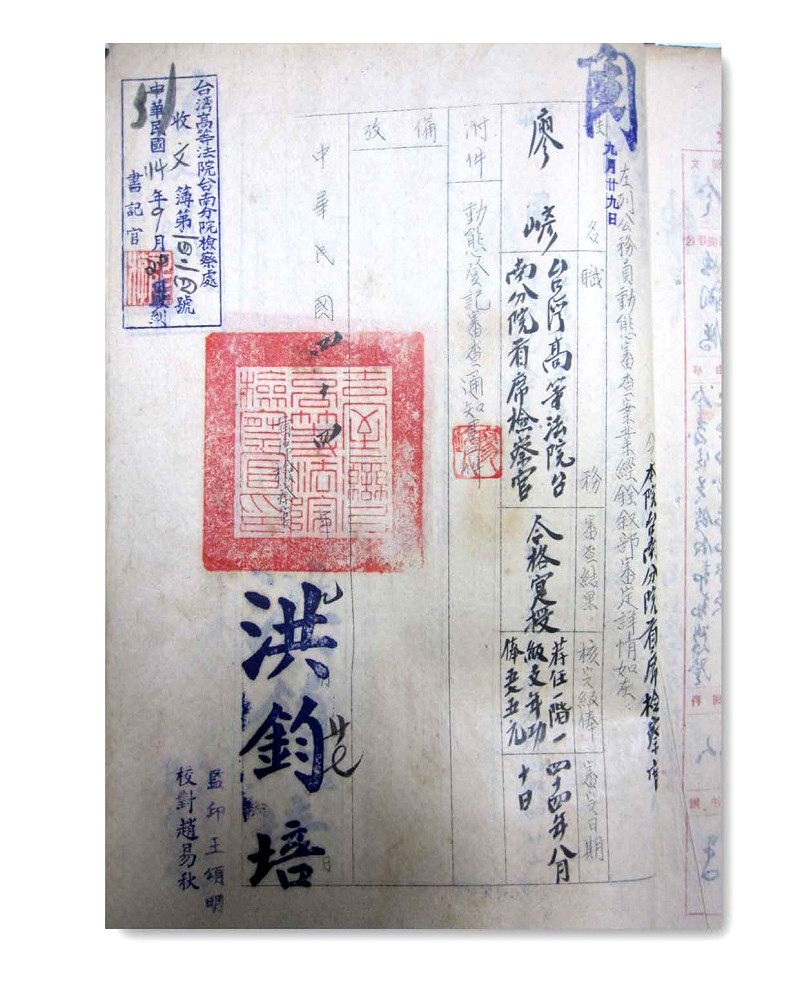 閱
九月廿九日
令本院台南分院首席檢察官
左列公務員動態審查案業經銓敘部審定詳情如左：
姓名
職務
審查結果
核定級俸
審定日期
廖
台灣高等法院台
南分院首席檢察官
合格實授
荐任一階一
級支年功
俸
四十四年八月
十日
附件
動態登記審查通知書
備攷
中華民國四十四年九月廿七日
洪鈞培
監印王頌明
校對趙易秋
台灣高等法院台南分院檢察處
收文簿第一四二四號
中華民國44年9月
書記官